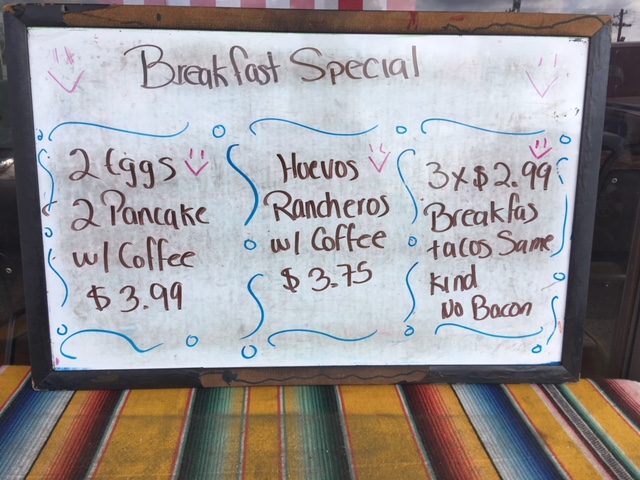 Breakfast Special
2 Eggs
2 Pancake
w/ Coffee
$ 3.99
Huevos
Rancheros
w/ Coffee
$ 3.75
3x$2.99
Breakfas
tacos Same
Kind
No Bacon